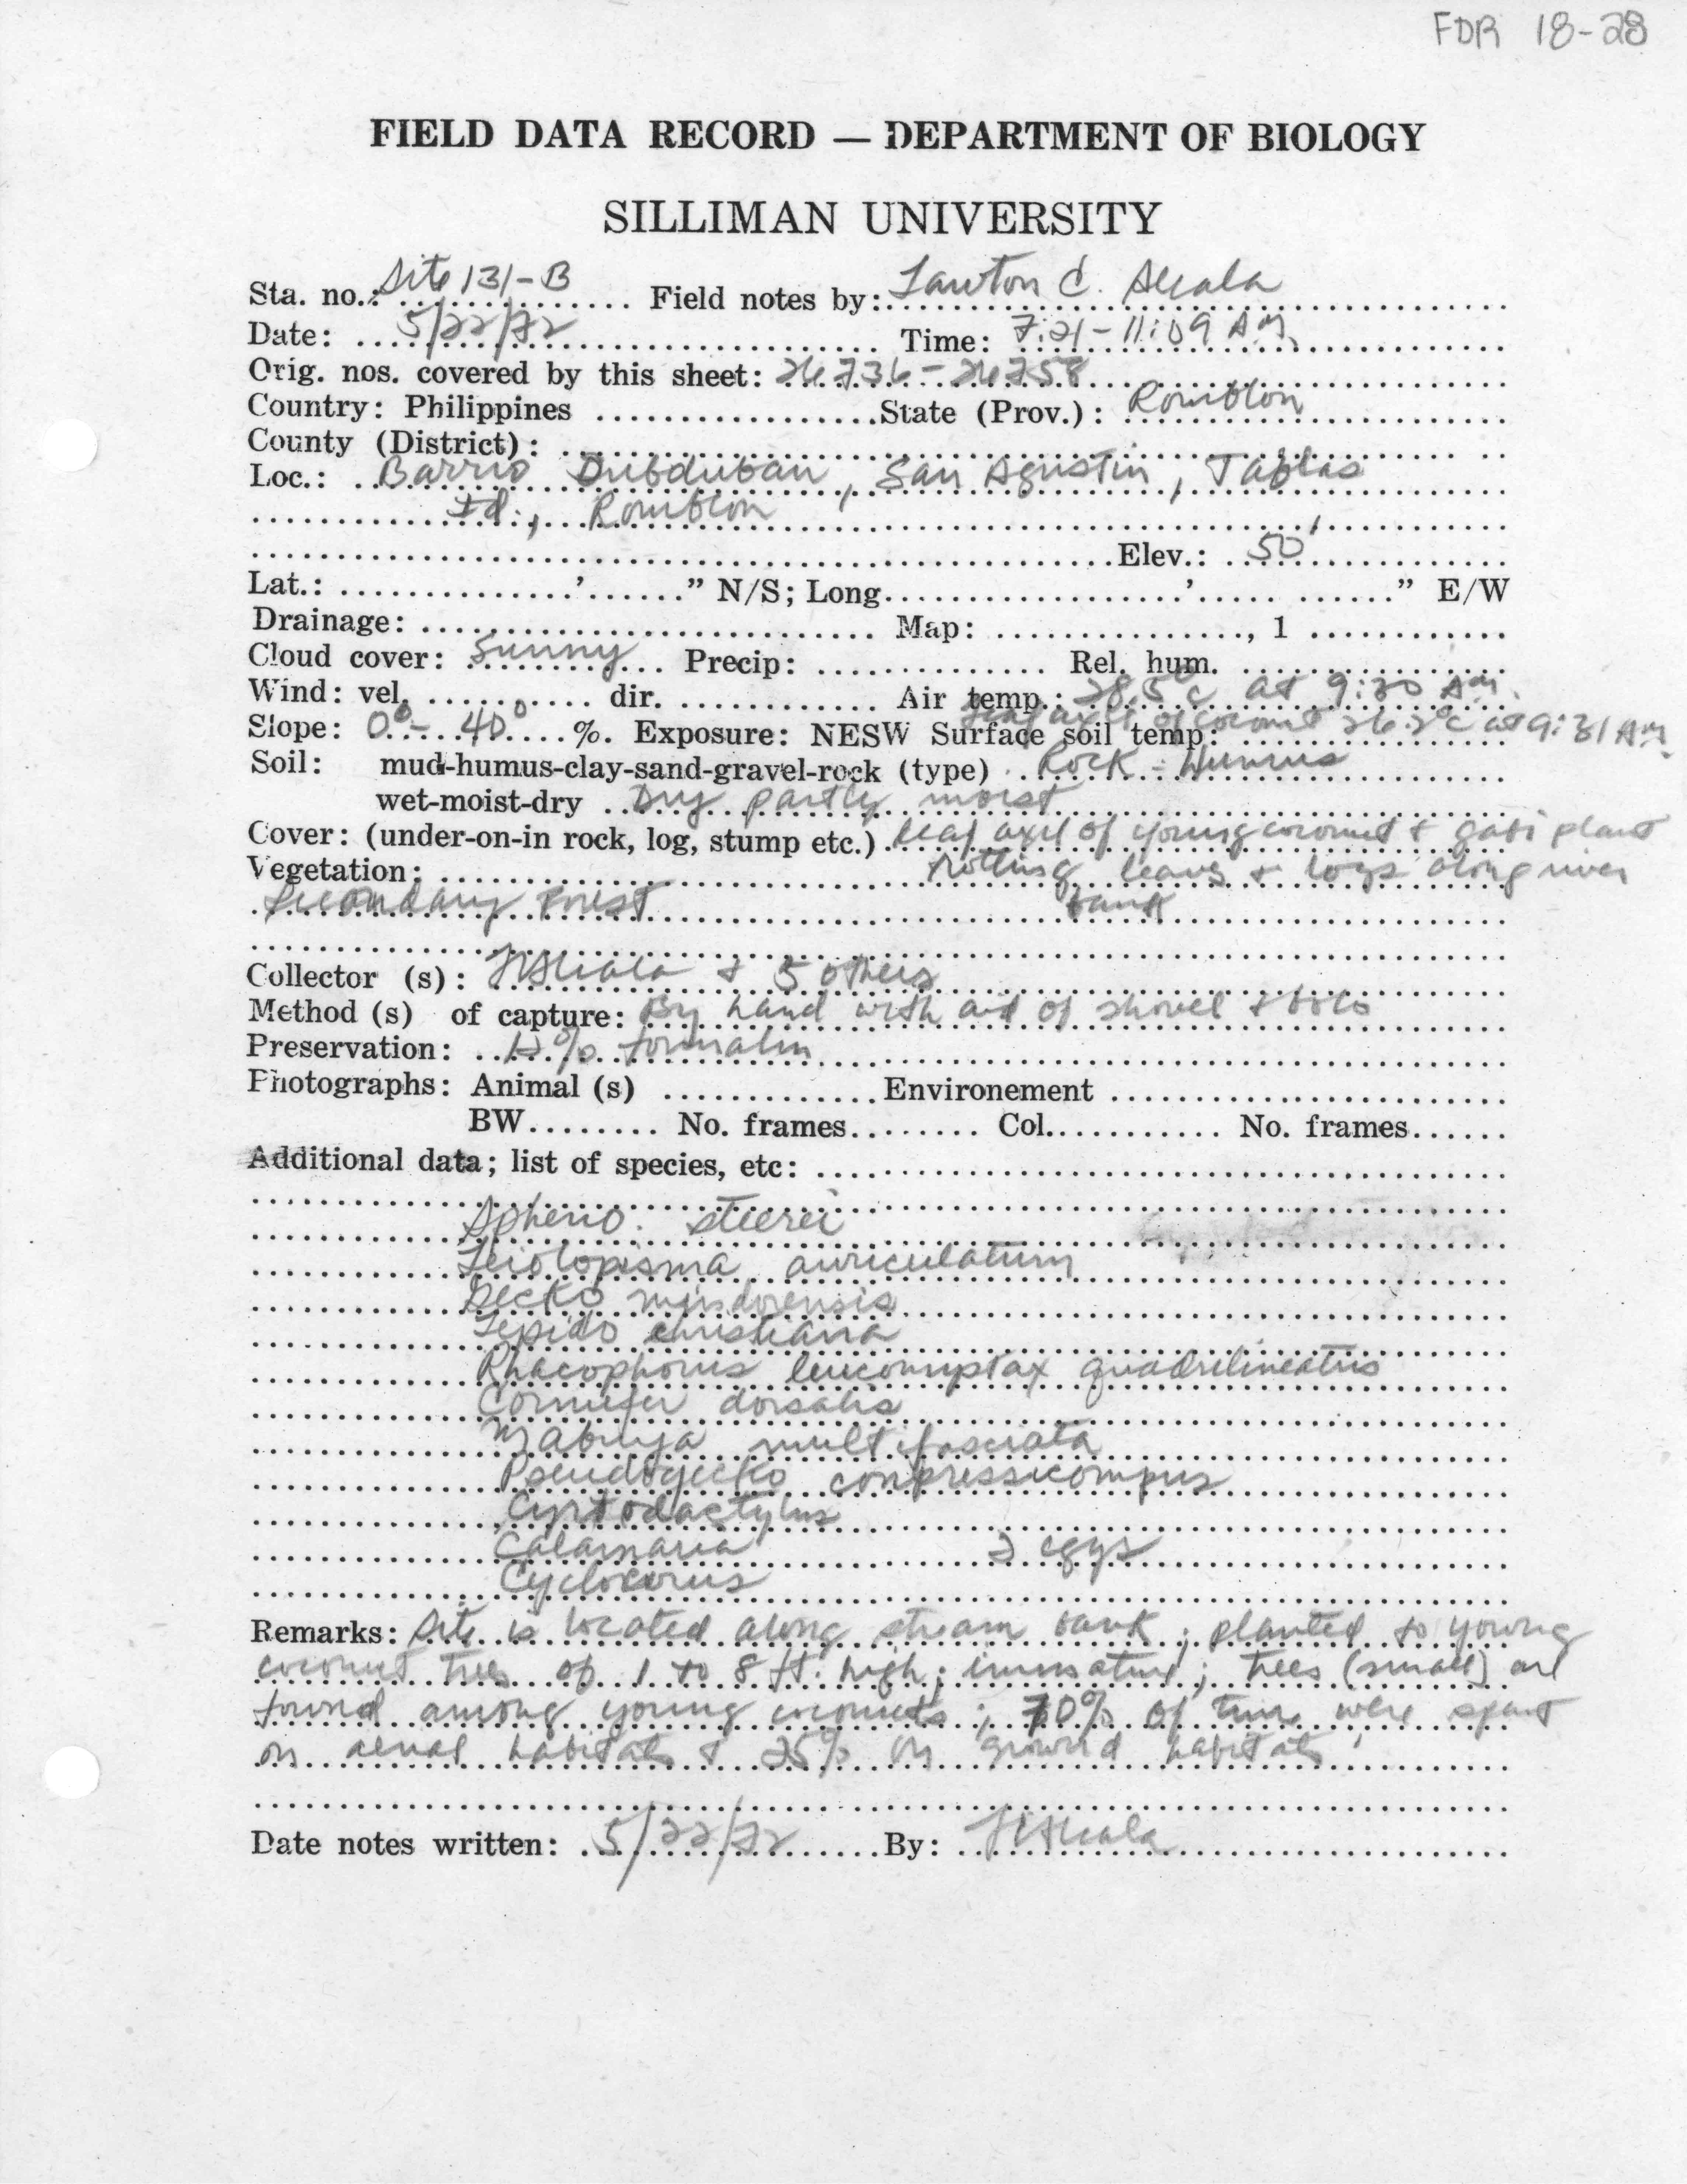 FDR 18-28
FIELD DATA RECORD — DEPARTMENT OF BIOLOGY
SILLIMAN UNIVERSITY
Sta. no.: Site 131-B Field notes by: Lawton C. Alcala
Date: 5/22/72 Time: 7:21 - 11:09 AM
Orig. nos. covered by this sheet: 26736 - 26758
Country: Philippines State (Prov.): Romblon
County (District):
Loc.: Barrio Dubduban, San Agustin, Tablas
Id., Romblon
Elev.: 50'
Lat.: ' " N/S; Long ' " E/W
Drainage: Map: , 1
Cloud cover: Sunny Precip: Rel. hum.
Wind: vel. dir. Air temp.: 28.5°C at 9:30 AM.
leaf axil of coconut 26.2°C at 9:31 AM
Slope: 0° - 40° %. Exposure: NESW Surface soil temp:
Soil: mud-humus-clay-sand-gravel-rock (type) Rock - Humus
wet-moist-dry Dry partly moist
Cover: (under-on-in rock, log, stump etc.) leaf axil of young coconut & gabi plant
Vegetation: rotting leaves & logs along river
Secondary Forest bank
Collector (s): LCAlcala & 5 others
Method (s) of capture: By hand with aid of shovel & bolo
Preservation: % formalin
Photographs: Animal (s) Environement
BW No. frames Col. No. frames
Additional data; list of species, etc:
Spheno. steerei
Leiolopisma auriculatum
Gecko mindorensis
Lepido christiana
Rhacophorus leucomystax quadrilineatus
Cornufer dorsalis
Mabuya multifasciata
Pseudogecko compressicorpus
Cyrtodactylus
Calamaria 2 eggs
Cyclocorus
Remarks: Site is located along stream bank; planted to young
coconut trees of 1 to 8 ft. high; immature; trees (small) are
found among young coconuts; 70% of time were spent
on aerial habitats & 25% on ground habitats
Date notes written: 5/22/72 By: LCAlcala